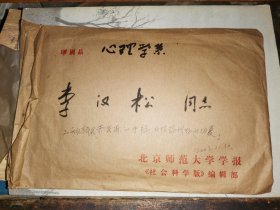 印刷品
心理学系
李汉松 同志
北京师范大学学报
《社会科学版》编辑部